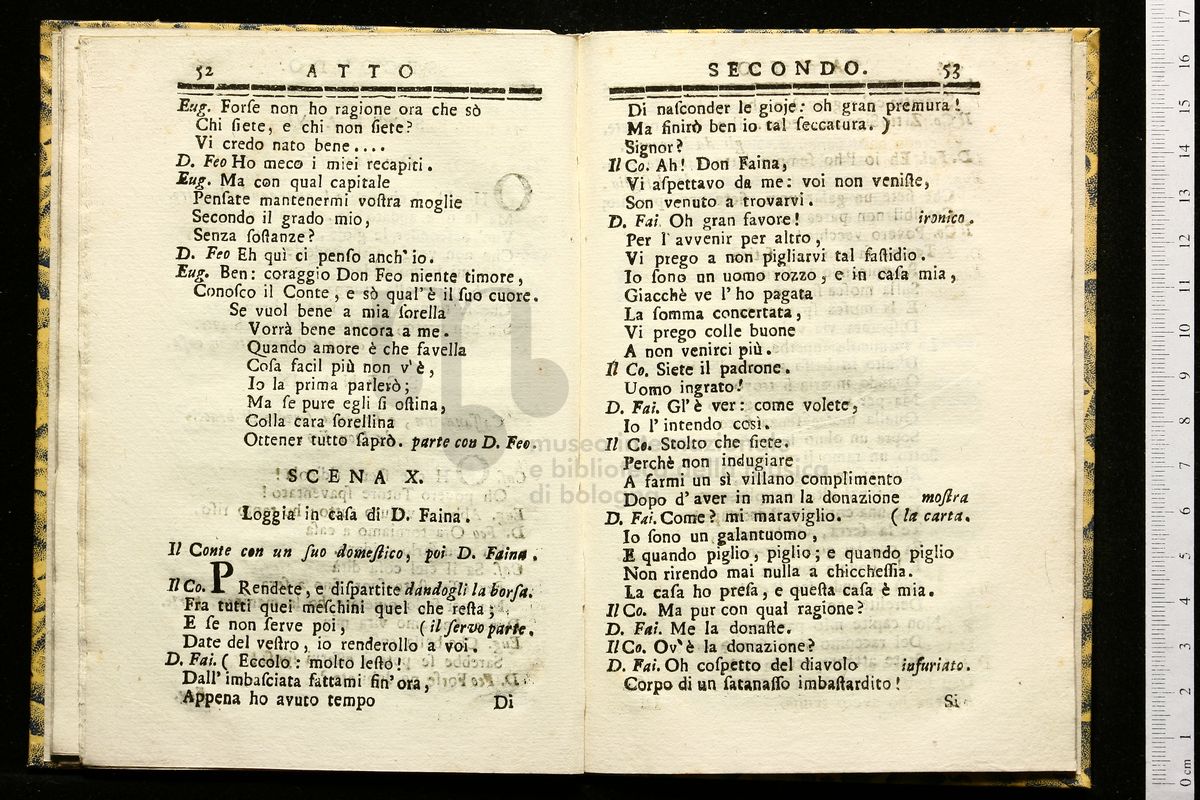 52 ATTO
Eug. Forſe non ho ragione ora che sò
Chi ſiete, e chi non ſiete?
Vi credo nato bene....
D. Feo Ho meco i miei recapiti.
Eug. Ma con qual capitale
Penſate mantenermi voſtra moglie
Secondo il grado mio,
Senza ſoſtanze?
D. Feo Eh quì ci penſo anch' io.
Eug. Ben: coraggio Don Feo niente timore,
Conoſco il Conte, e sò qual' è il ſuo cuore.
Se vuol bene a mia ſorella
Vorrà bene ancora a me.
Quando amore è che favella
Coſa facil più non v' è,
Io la prima parlerò;
Ma ſe pure egli ſi oſtina,
Colla cara ſorellina
Ottener tutto ſaprò. parte con D. Feo.
SCENA X.
Loggia in caſa di D. Faina.
Il Conte con un ſuo domeſtico, poi D. Faina.
Il Co. PRendete, e diſpartite dandogli la borſa.
Fra tutti quei meſchini quel che reſta;
E ſe non ſerve poi, (il ſervo parte.
Date del veſtro, io renderollo a voi.
D. Fai. (Eccolo: molto leſto!
Dall' imbaſciata fattami fin' ora,
Appena ho avuto tempo
Di
SECONDO. 53
Di naſconder le gioje: oh gran premura!
Ma finirò ben io tal ſeccatura.)
Signor?
Il Co. Ah! Don Faina,
Vi aſpettavo da me: voi non veniſte,
Son venuto a trovarvi.
D. Fai. Oh gran favore! ironico.
Per l' avvenir per altro,
Vi prego a non pigliarvi tal faſtidio.
Io ſono un uomo rozzo, e in caſa mia,
Giacchè ve l' ho pagata
La ſomma concertata,
Vi prego colle buone
A non venirci più.
Il Co. Siete il padrone.
Uomo ingrato!
D. Fai. Gl' è ver: come volete,
Io l' intendo così.
Il Co. Stolto che ſiete.
Perchè non indugiare
A farmi un sì villano complimento
Dopo d' aver in man la donazione moſtra
D. Fai. Come? mi maraviglio. (la carta.
Io ſono un galantuomo,
E quando piglio, piglio; e quando piglio
Non rirendo mai nulla a chiccheſſia.
La caſa ho preſa, e queſta caſa è mia.
Il Co. Ma pur con qual ragione?
D. Fai. Me la donaſte.
Il Co. Ov' è la donazione?
D. Fai. Oh coſpetto del diavolo infuriato.
Corpo di un ſatanaſſo imbaſtardito!
Si